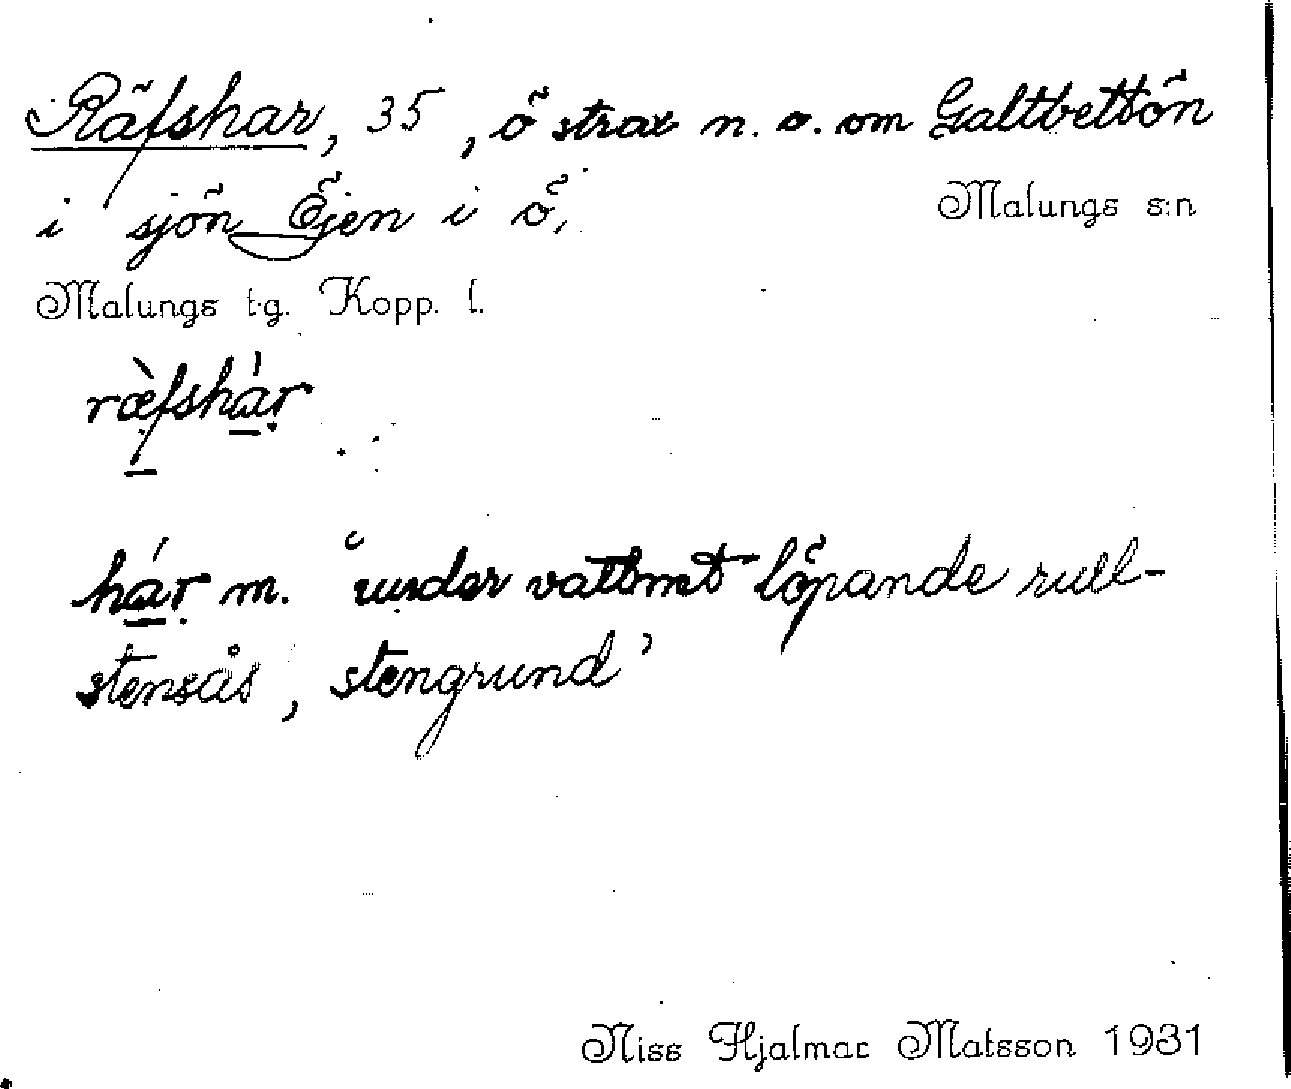 Räfshar, 35, ö strax n. o. om Galtbettön
i sjön Öjen i ö,
Malungs s:n
Malungs t.g. Kopp. l.
ræ̀fshár
hár m. 'under vattnet löpande rull-
stensås, stengrund'
Niss Hjalmar Matsson 1931